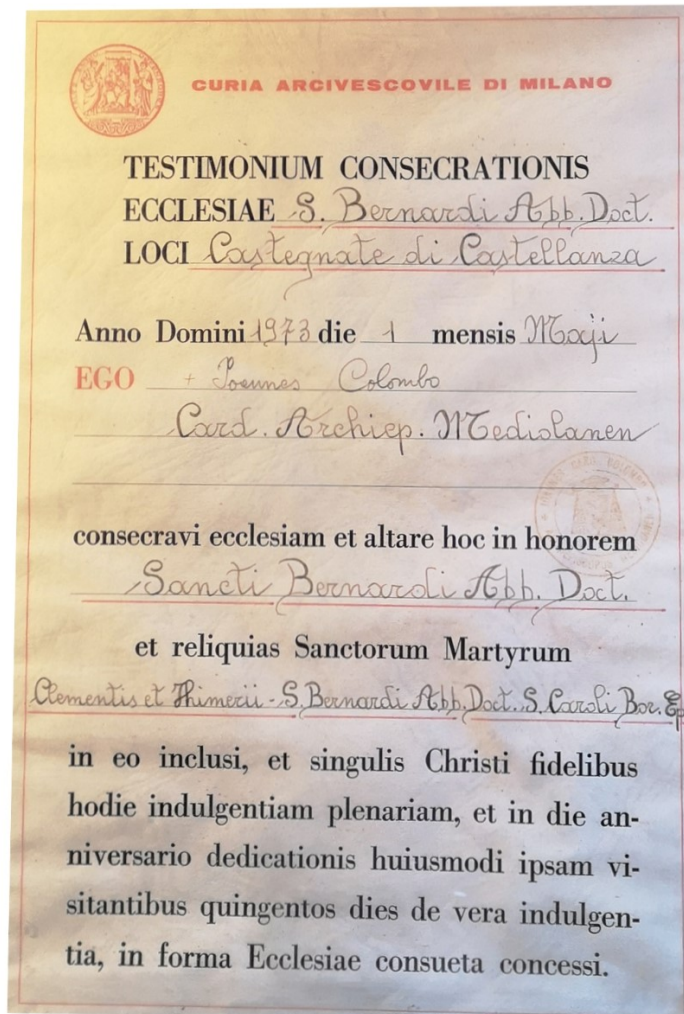 CURIA ARCIVESCOVILE DI MILANO
TESTIMONIUM CONSECRATIONIS
ECCLESIAE S. Bernardi Abb. Doct.
LOCI Castegnate di Castellanza
Anno Domini 1973 die 1 mensis Maji
EGO + Joannes Colombo
Card. Archiep. Mediolanen
consecravi ecclesiam et altare hoc in honorem
Sancti Bernardi Abb. Doct.
et reliquias Sanctorum Martyrum
Clementis et Thimerii - S. Bernardi Abb. Doct. S. Caroli Bor. Ep
in eo inclusi, et singulis Christi fidelibus
hodie indulgentiam plenariam, et in die an-
niversario dedicationis huiusmodi ipsam vi-
sitantibus quingentos dies de vera indulgen-
tia, in forma Ecclesiae consueta concessi.